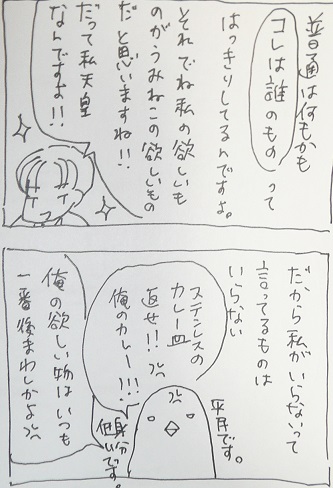 普通は何もかも
コレは誰のものって
はっきりしてるんですよ。
それでね私の欲しいも
のがうみねこの欲しいもの
だと思いますね!!
だって私天皇
なんですよ!!
だから私がいらないって
言ってるものは
いらない
ステンレスの
カレー皿
返せ!!
俺のカレー!!!
平民です。
身分
低いです。
俺の欲しい物はいつも
一番後まわしかよ